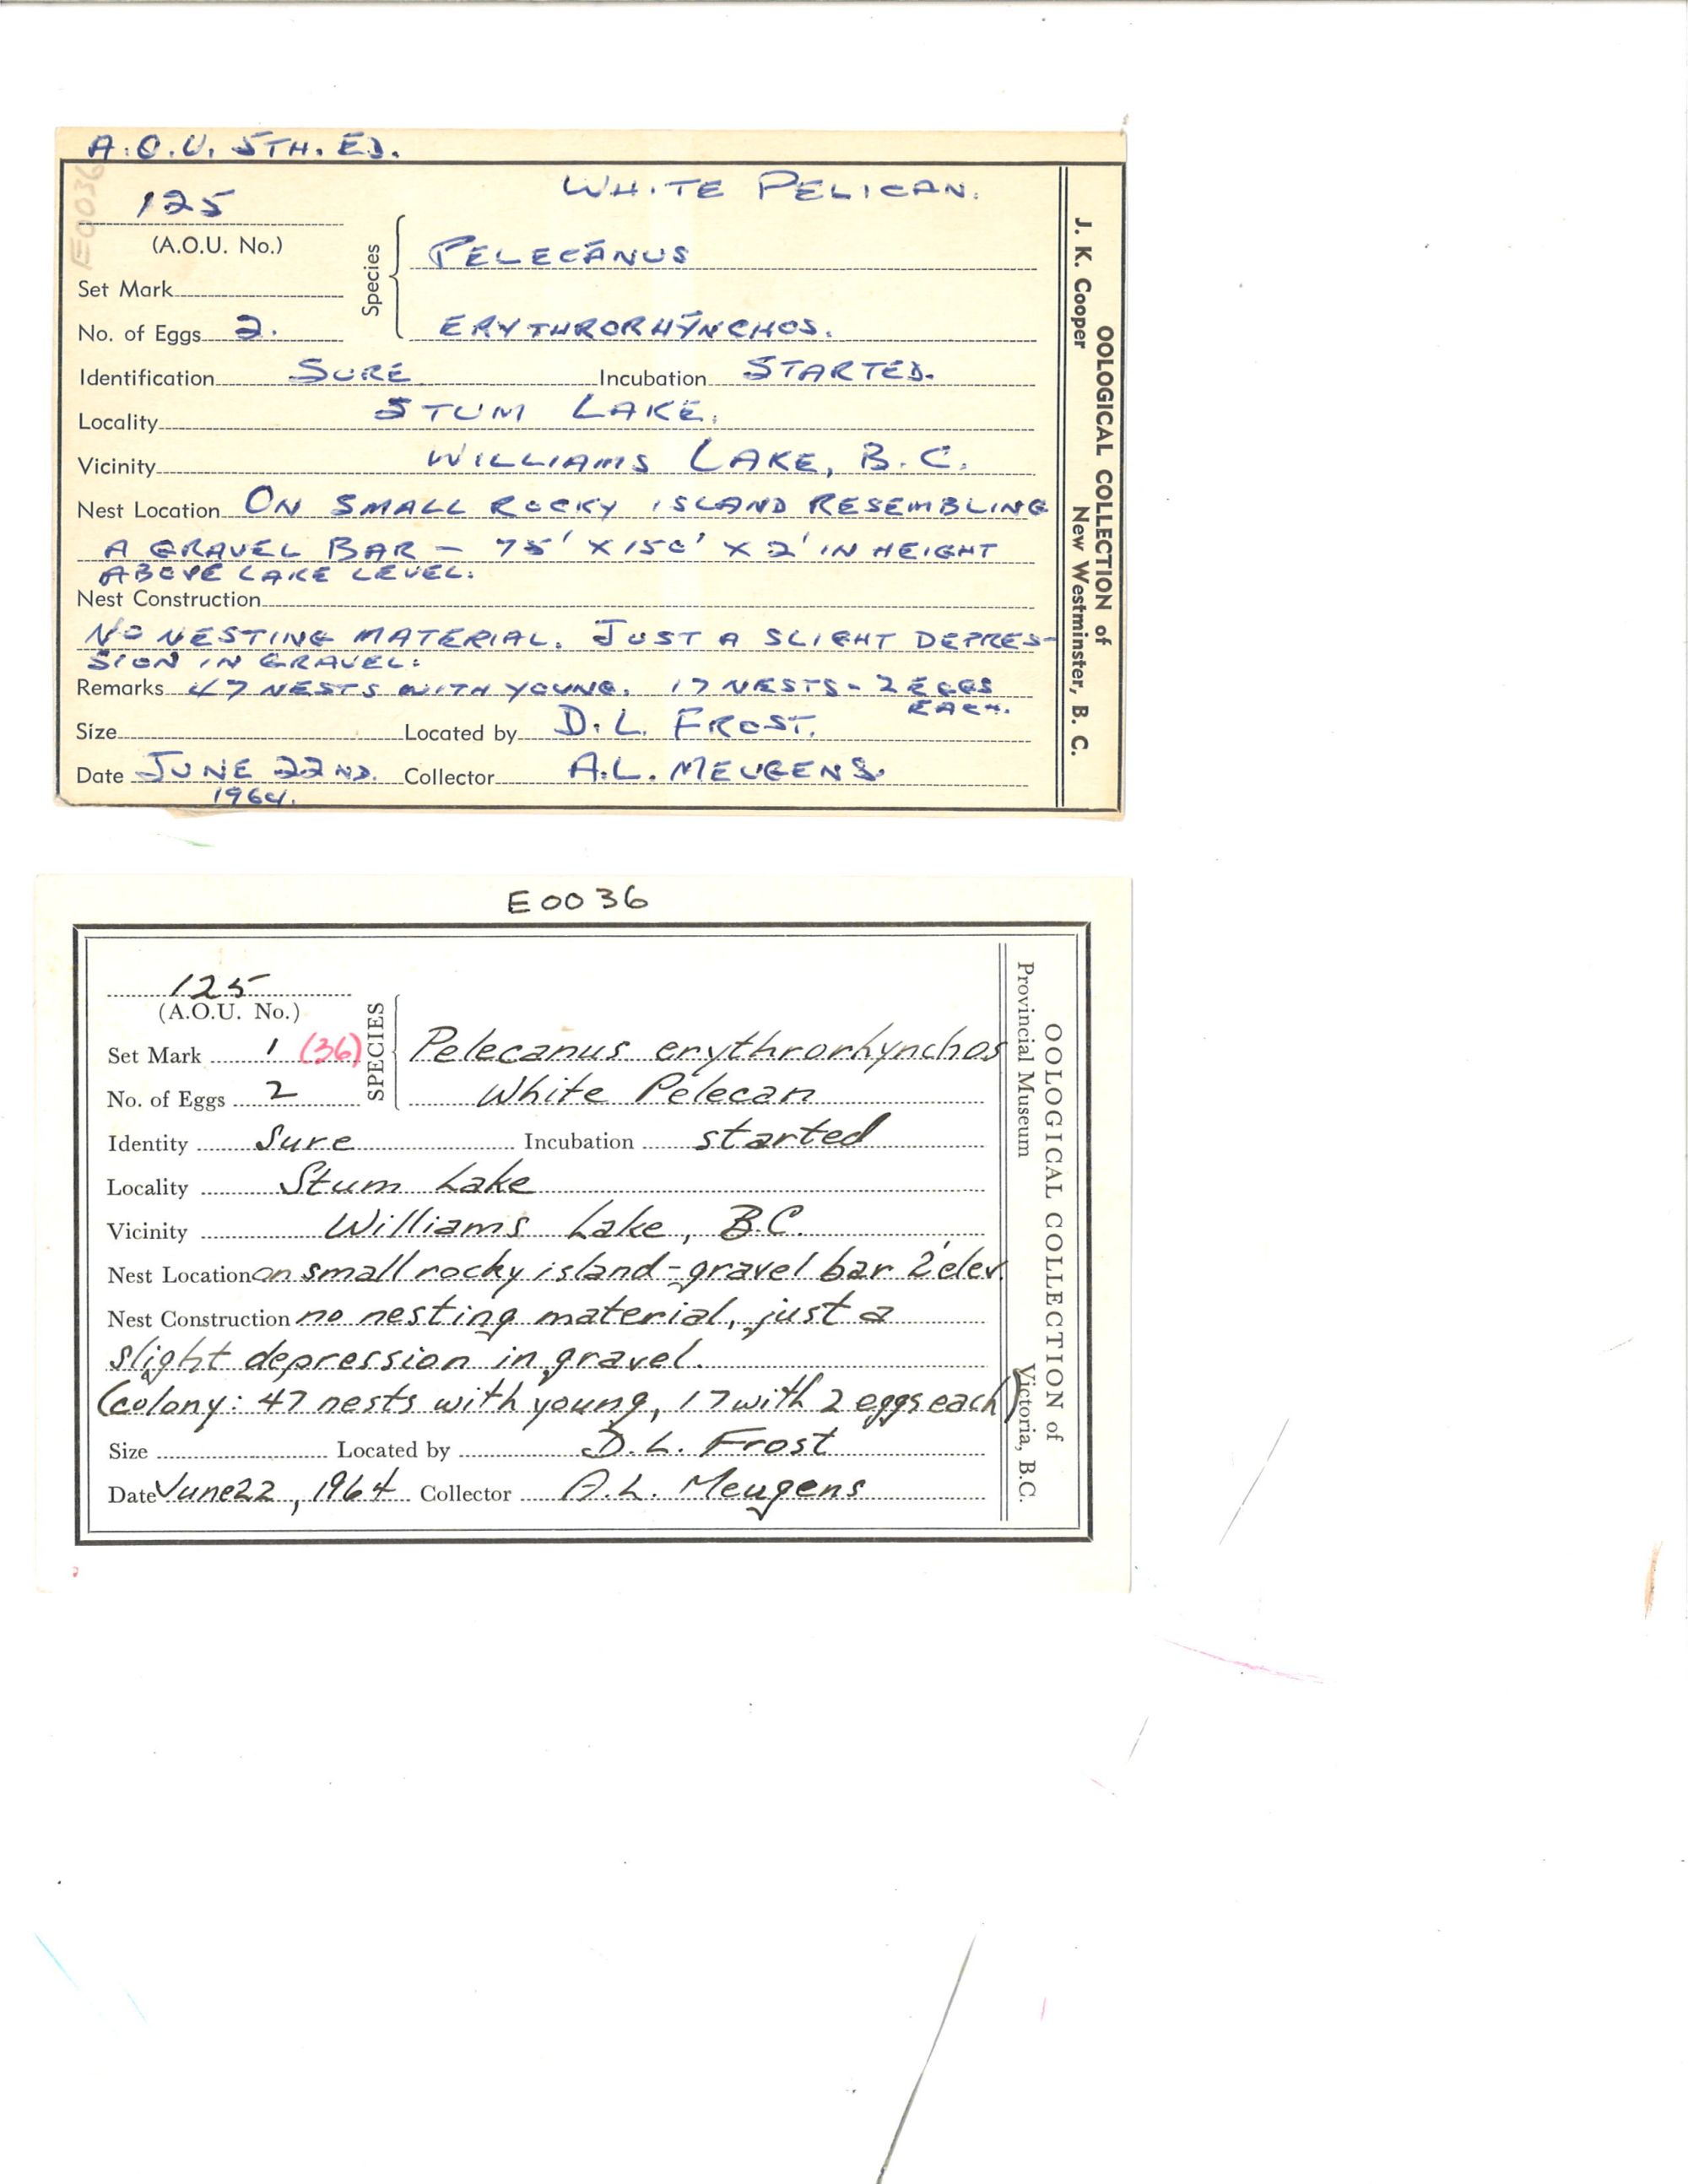 A.O.U. 5TH. ED.
E0036
125
WHITE PELICAN.
(A.O.U. No.)
Species
PELECANUS
Set Mark
No. of Eggs 2.
ERYTHRORHYNCHOS.
Identification SURE Incubation STARTED.
Locality STUM LAKE.
Vicinity WILLIAMS LAKE, B.C.
Nest Location ON SMALL ROCKY ISLAND RESEMBLING
A GRAVEL BAR – 75' X 150' X 2' IN HEIGHT
ABOVE LAKE LEVEL.
Nest Construction
NO NESTING MATERIAL. JUST A SLIGHT DEPRES-
SION IN GRAVEL.
Remarks 47 NESTS WITH YOUNG. 17 NESTS - 2 EGGS
EACH.
Size Located by D.L. FROST.
Date JUNE 22ND. Collector A.L. MEUGENS.
1964.
OOLOGICAL COLLECTION of
J. K. Cooper New Westminster, B. C.
E0036
125
(A.O.U. No.)
SPECIES
Set Mark 1 (36)
Pelecanus erythrorhynchos
No. of Eggs 2
White Pelecan
Identity Sure Incubation started
Locality Stum Lake
Vicinity Williams Lake, B.C.
Nest Location on small rocky island - gravel bar 2' elev.
Nest Construction no nesting material, just a
slight depression in gravel.
(colony: 47 nests with young, 17 with 2 eggs each)
Size Located by D.L. Frost
Date June 22, 1964 Collector A.L. Meugens
OOLOGICAL COLLECTION of
Provincial Museum Victoria, B.C.